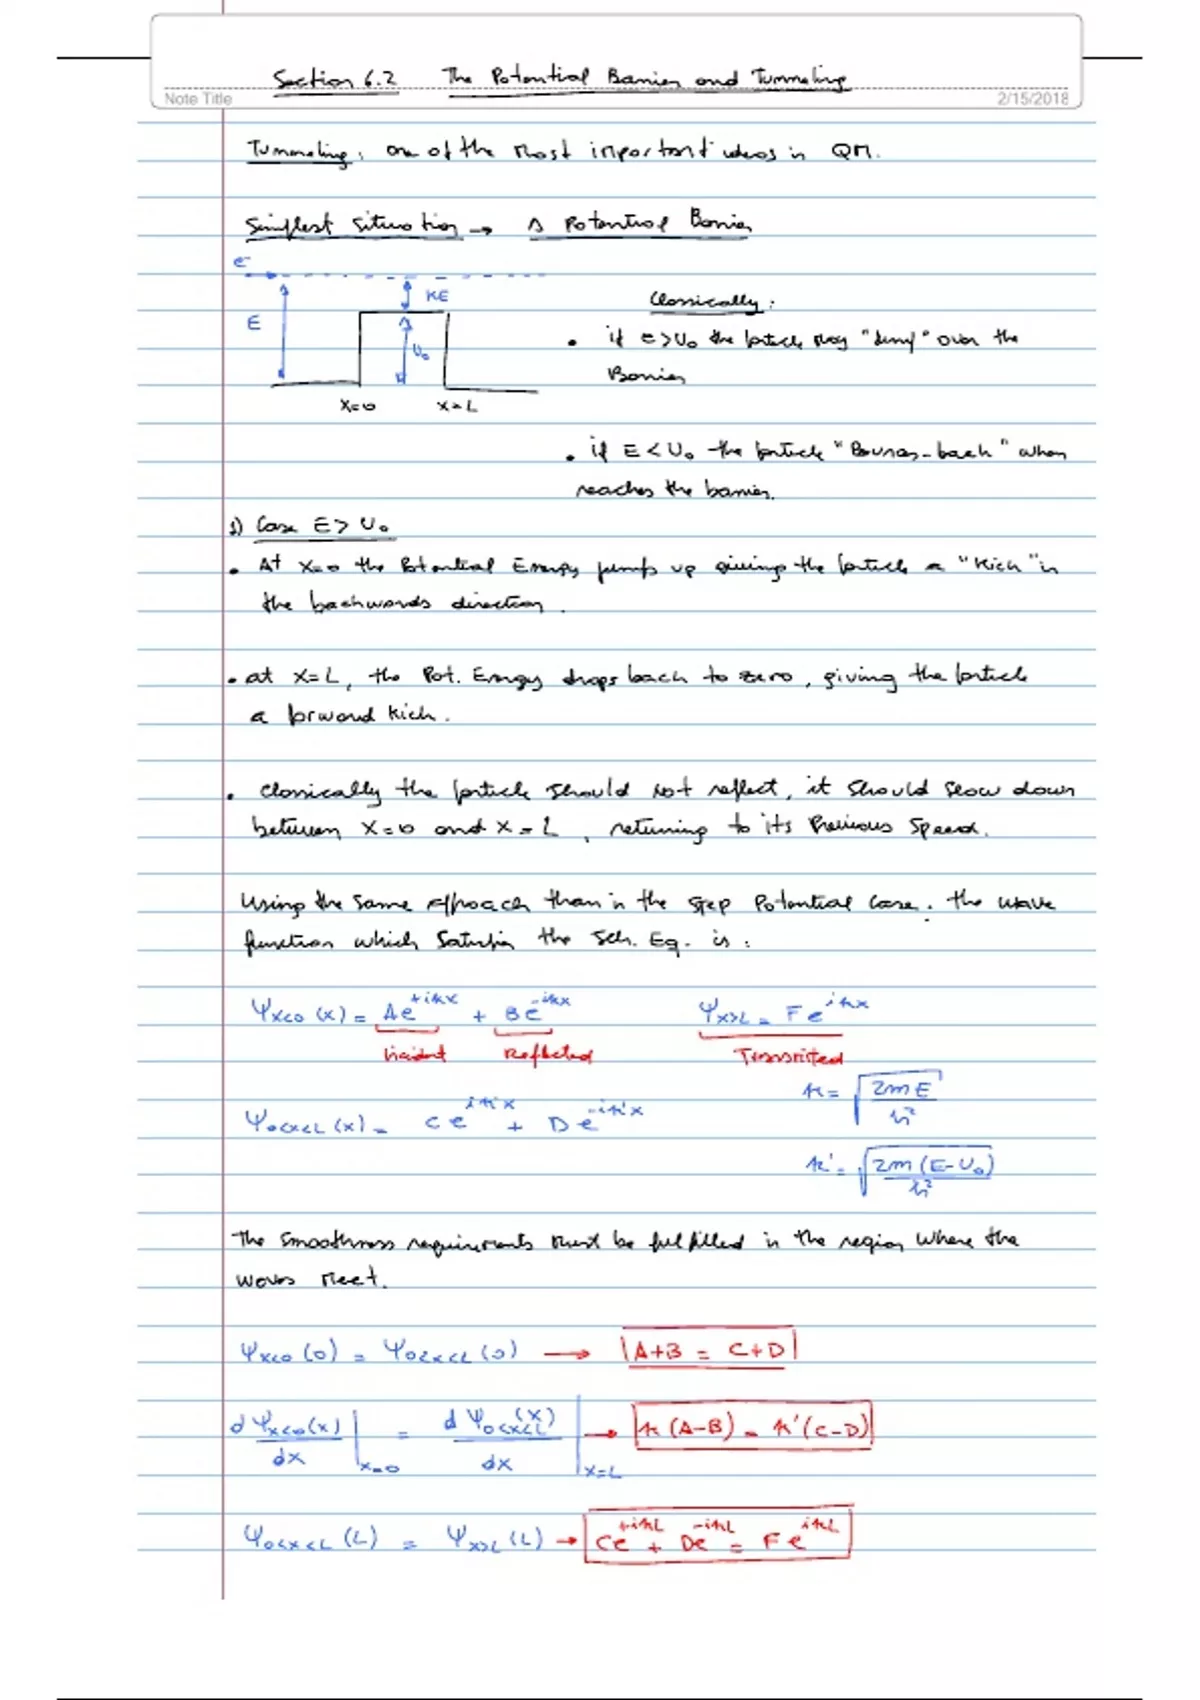 Section 6.2 The Potential Barrier and Tunneling
Note Title 2/15/2018
Tunneling: one of the most important ideas in QM.
Simplest situation → A Potential Barrier
e⁻
E
KE
U₀
X=0 X=L
Classically:
• if E>U₀ the particle may "jump" over the
Barrier
• if E<U₀ the particle "Bounces-back" when
reaches the barrier.
1) Case E>U₀
• At x=0 the Potential Energy jumps up giving the particle a "kick" in
the backwards direction.
• at x=L, the Pot. Energy drops back to zero, giving the particle
a forward kick.
• Classically the particle should not reflect, it should slow down
between x=0 and x=L, returning to its Previous Speed.
Using the same approach than in the step Potential case. the wave
function which satisfies the Sch. Eq. is:
Ψx<0 (x) = Ae^{+ikx} + Be^{-ikx} Ψx>L = Fe^{ikx}
Incident Reflected Transmitted
k = √(2mE/ħ²)
Ψ0<x<L (x) = Ce^{ik'x} + De^{-ik'x}
k' = √(2m(E-U₀)/ħ²)
The smoothness requirements must be fulfilled in the region where the
waves meet.
Ψx<0 (0) = Ψ0<x<L (0) → A+B = C+D
dΨx<0(x)/dx |x=0 = dΨ0<x<L(x)/dx |x=L → k(A-B) = k'(C-D)
Ψ0<x<L (L) = Ψx>L (L) → Ce^{+ikL} + De^{-ikL} = Fe^{ikL}